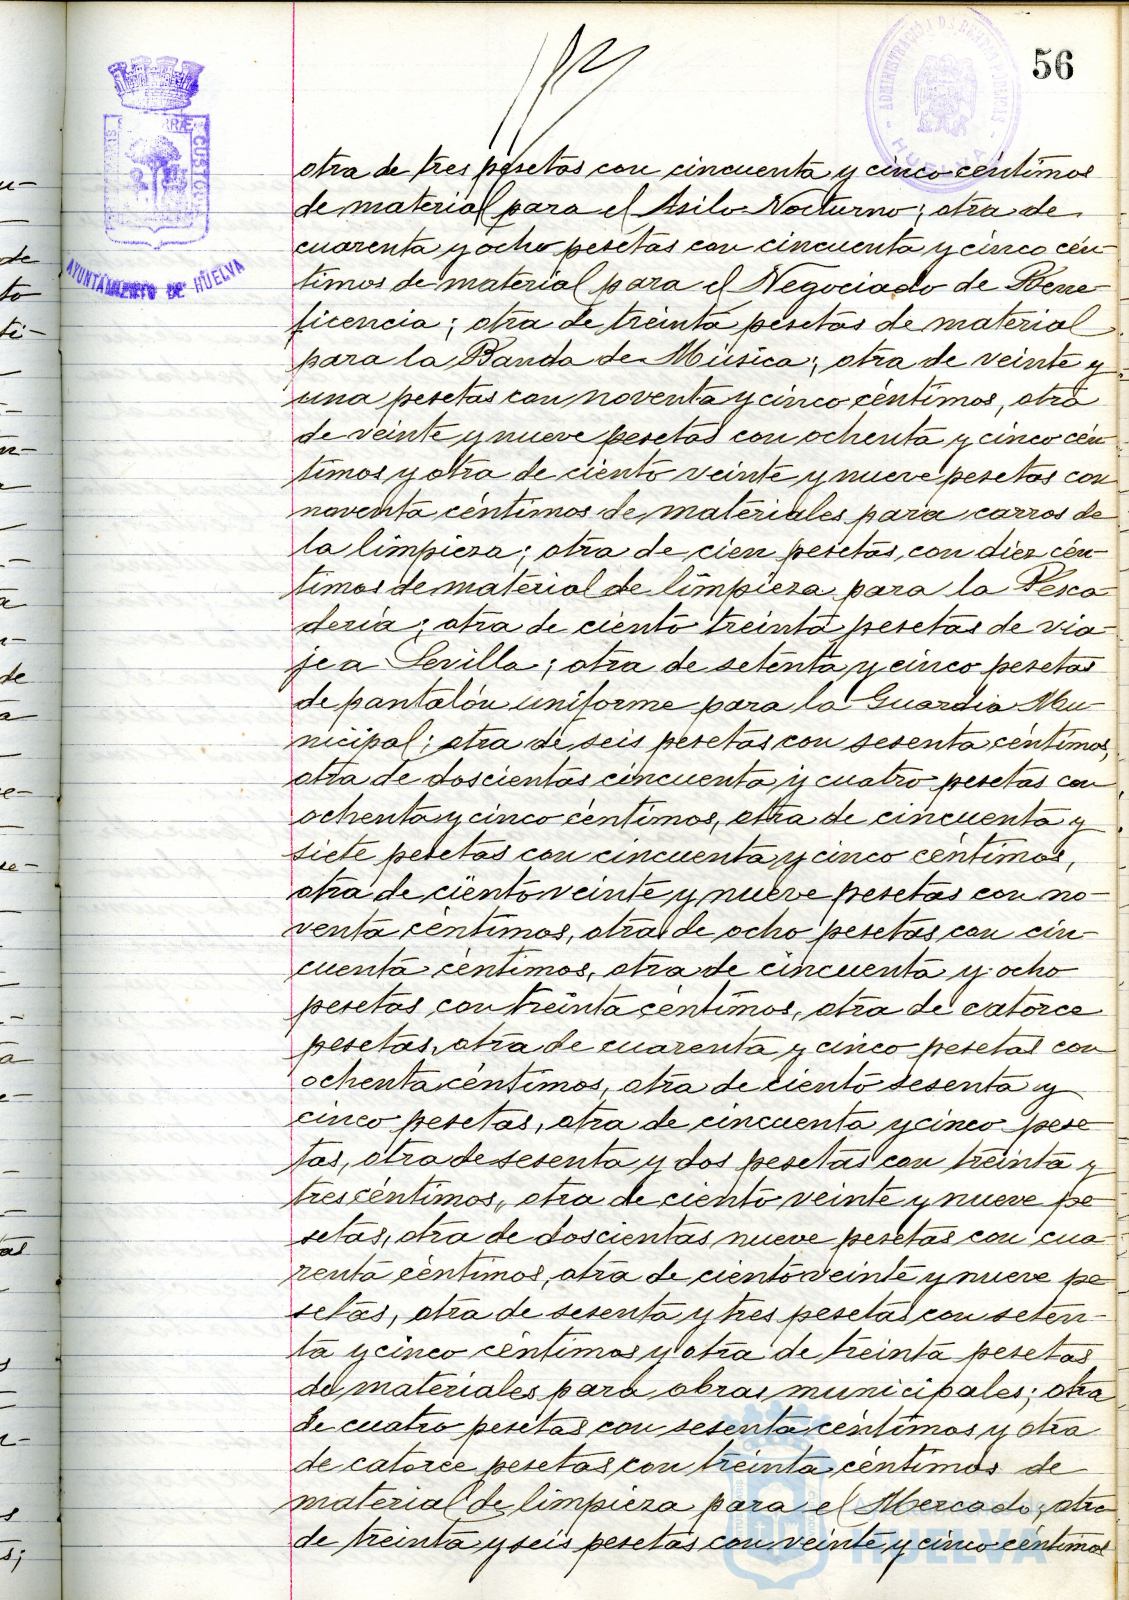 56
ADMINISTRACIÓN DE RENTAS PUBLICAS
HUELVA
PORTUS MARIS ET TERRÆ CUSTODIA
AYUNTAMIENTO DE HUELVA
otra de tres pesetas con cincuenta y cinco céntimos
de material para el Asilo Nocturno; otra de
cuarenta y ocho pesetas con cincuenta y cinco cén-
timos de material para el Negociado de Bene-
ficencia; otra de treinta pesetas de material
para la Banda de Música; otra de veinte y
una pesetas con noventa y cinco céntimos, otra
de veinte y nueve pesetas con ochenta y cinco cén
timos y otra de ciento veinte y nueve pesetas con
noventa céntimos de materiales para carros de
la limpieza; otra de cien pesetas con diez cén-
timos de material de limpieza para la Pesca-
dería; otra de ciento treinta pesetas de via-
je a Sevilla; otra de setenta y cinco pesetas
de pantalón uniforme para la Guardia Mu-
nicipal; otra de seis pesetas con sesenta céntimos,
otra de doscientas cincuenta y cuatro pesetas con
ochenta y cinco céntimos, otra de cincuenta y
siete pesetas con cincuenta y cinco céntimos,
otra de ciento veinte y nueve pesetas con no-
venta céntimos, otras de ocho pesetas con cin-
cuenta céntimos, otra de cincuenta y ocho
pesetas con treinta céntimos, otra de catorce
pesetas, otra de cuarenta y cinco pesetas con
ochenta céntimos, otra de ciento sesenta y
cinco pesetas, otra de cincuenta y cinco pese-
tas, otra de sesenta y dos pesetas con treinta y
tres céntimos, otra de ciento veinte y nueve pe-
setas, otra de doscientas nueve pesetas con cua-
renta céntimos, otra de ciento veinte y nueve pe-
setas, otra de sesenta y tres pesetas con seten-
ta y cinco céntimos y otra de treinta pesetas
de materiales para obras municipales; otra
de cuatro pesetas con sesenta céntimos y otra
de catorce pesetas con treinta céntimos de
material de limpieza para el Mercado, otra
de treinta y seis pesetas con veinte y cinco céntimos
HUELVA